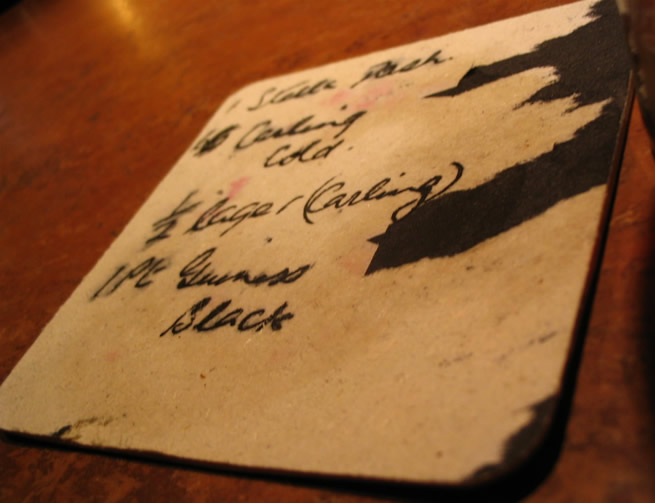 1 Stella Dash.
Carling
Cold.
1/2 lager (Carling)
1 PT Guiness
Black